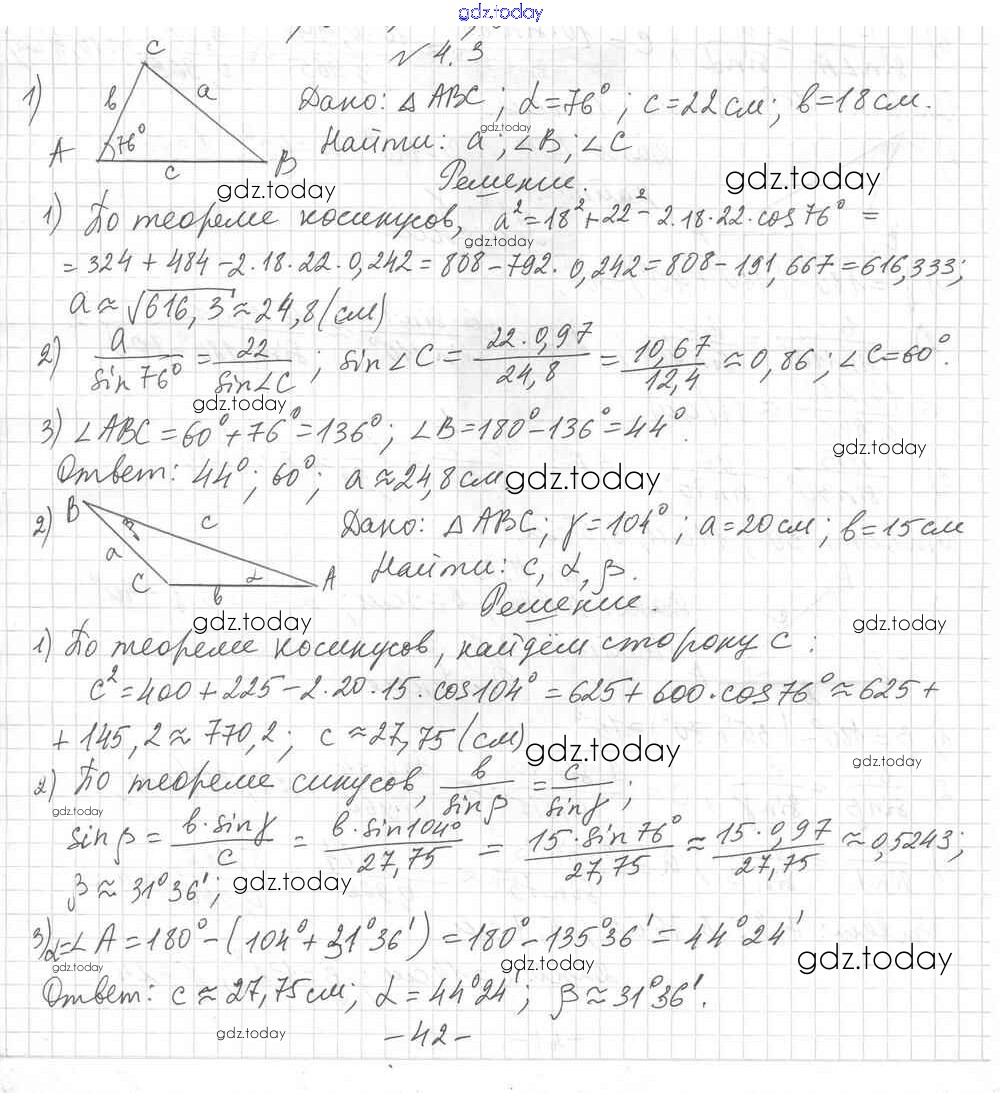 gdz.today
№ 4.3
1) Дано: △ ABC; α=76°; c=22 см; b=18 см.
C b a 76° A c B
Найти: a; ∠B; ∠C
gdz.today
Решение.
gdz.today gdz.today
1) По теореме косинусов, a²=18²+22²-2.18·22·cos 76° =
gdz.today
= 324 + 484 - 2·18·22·0,242 = 808 - 792·0,242 = 808 - 191,667 = 616,333;
a ≈ √616,3 ≈ 24,8 (см)
2) a/sin 76° = 22/sin∠C; sin∠C = 22·0,97/24,8 = 10,67/12,4 ≈ 0,86; ∠C=60°.
gdz.today
3) ∠ABC = 60° + 76° = 136°; ∠B = 180° - 136° = 44°.
gdz.today
Ответ: 44°; 60°; a ≈ 24,8 см
gdz.today
2) Дано: △ ABC; γ = 104°; a = 20 см; b = 15 см
B β c a C b α A
Найти: c, α, β.
Решение.
gdz.today gdz.today
1) По теореме косинусов, найдём сторону c:
c² = 400 + 225 - 2·20·15·cos 104° = 625 + 600·cos 76° ≈ 625 +
+ 145,2 ≈ 770,2; c ≈ 27,75 (см)
gdz.today gdz.today
2) По теореме синусов, b/sin β = c/sin γ;
gdz.today
sin β = b·sin γ/c = b·sin 104°/27,75 = 15·sin 76°/27,75 ≈ 15·0,97/27,75 ≈ 0,5243;
β ≈ 31°36';
gdz.today
3) α=∠A = 180° - (104° + 31°36') = 180° - 135°36' = 44°24'
gdz.today gdz.today gdz.today
Ответ: c ≈ 27,75 см; α = 44°24'; β ≈ 31°36'.
gdz.today
- 42 -